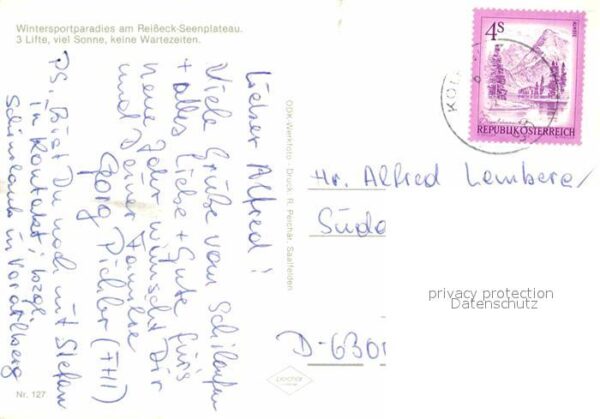 Wintersportparadies am Reißeck-Seenplateau.
3 Lifte, viel Sonne, keine Wartezeiten.
Lieber Alfred!
Viele Grüße vom Schilaufen
+ alles Liebe + Gute fürs
neue Jahr wünscht Dir
und Deiner Familie
Georg Pichler (FHI)
PS. Bist Du noch mit Stefan
in Kontakt, bzgl.
Schiurlaub in Vorarlberg
Nr. 127
ODK-Werkfoto · Druck R. Peichär, Saalfelden
4S
REPUBLIK ÖSTERREICH
Hr. Alfred
Süda
D-6301
privacy protection
Datenschutz